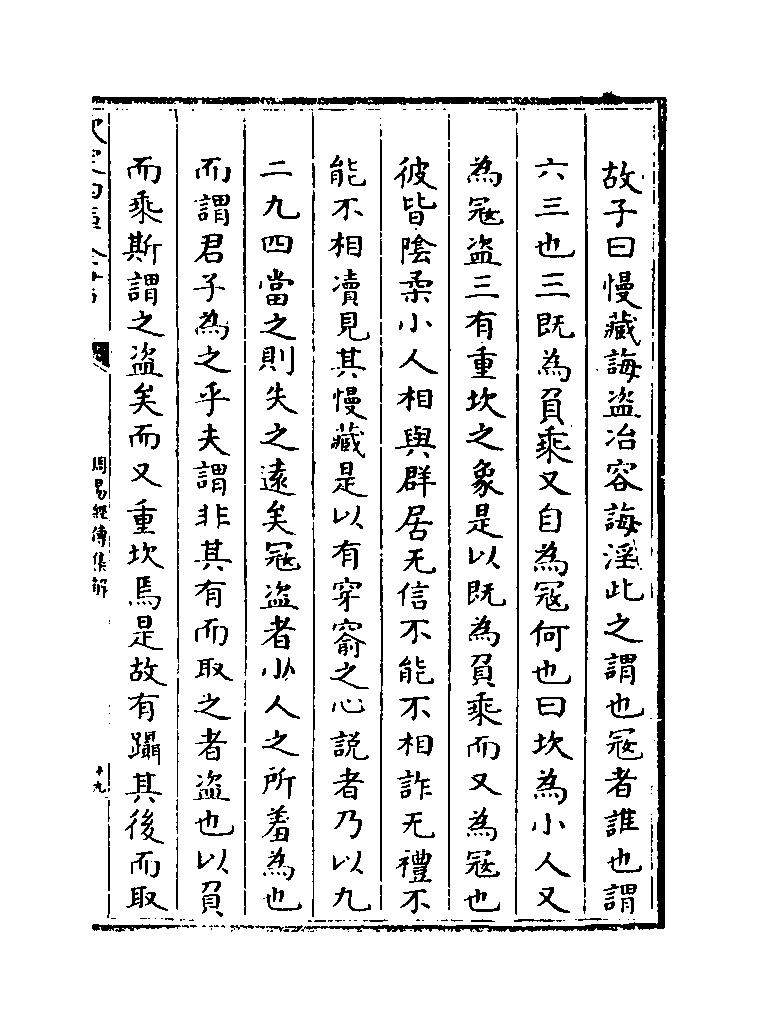 故子曰慢藏誨盗冶容誨淫此之謂也冦者誰也謂
六三也三既為負乘又自為冦何也曰坎為小人又
為冦盗三有重坎之象是以既為負乘而又為冦也
彼皆陰柔小人相與群居无信不能不相詐无禮不
能不相凟見其慢藏是以有穿窬之心説者乃以九
二九四當之則失之逺矣冦盗者小人之所羞為也
而謂君子為之乎夫謂非其有而取之者盗也以負
而乘斯謂之盗矣而又重坎焉是故有躡其後而取
欽定四庫全書
周易經傳集解
十九